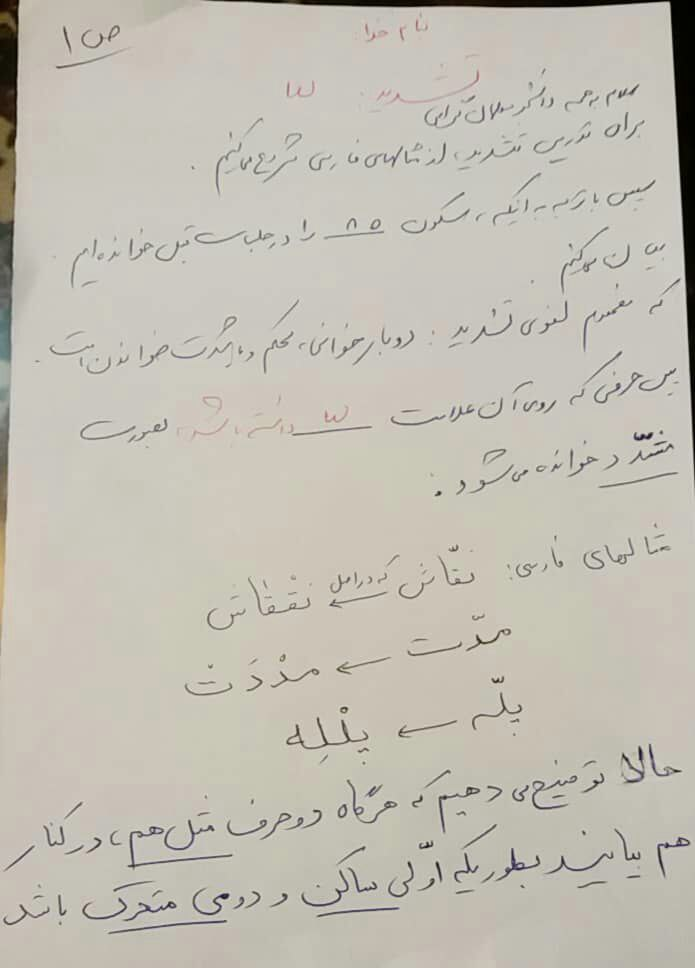 ص ۱
بنام خدا
تشدید: ّ
سلام به همه دانشجو معلمان گرامی
برای تدریس تشدید، از مثالهای فارسی شروع می‌کنیم.
سپس با توجه به اینکه، سکون ْ را در جلسات قبل خوانده‌ایم.
بیان می‌کنیم
که مفهوم لغوی تشدید: دوبار خوانی، محکم و با شدت خواندن است.
پس حرفی که روی آن علامت ّ داشته باشد، بصورت
مشدّد خوانده می‌شود:
مثالهای فارسی: نقّاش که در اصل ← نقْقاش
مدّت ← مدْدَت
پلّه ← پلْلِه
حالا توضیح می‌دهیم که هرگاه دو حرف مثل هم، در کنار
هم بیایند بطوریکه اوّلی ساکن و دومی متحرک باشد